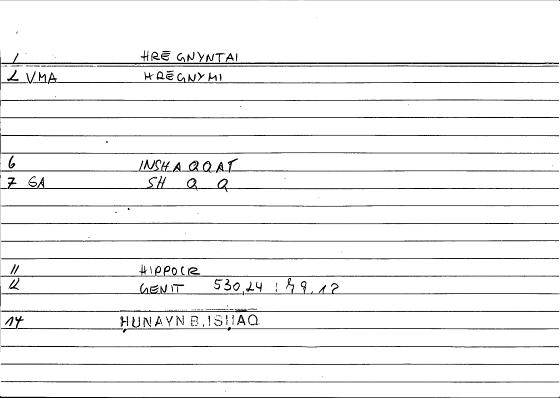 1 HRĒGNYNTAI
2 VMA HRĒGNYMI
6 INSHAQQAT
7 GA SH Q Q
11 HIPPOCR
12 GENIT 530,24 :
14 ḤUNAYN B. ISḤĀQ